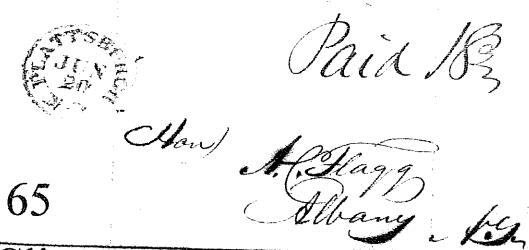 PLATTSBURGH
JUN
20
Paid 18¾
Hon)
A.C. Flagg
Albany N.Y.
65